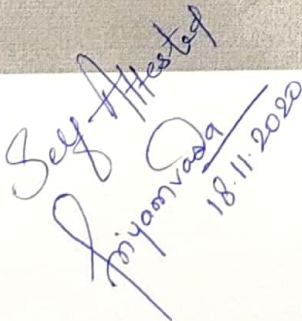 Self Attested
Priyamvada
18.11.2020